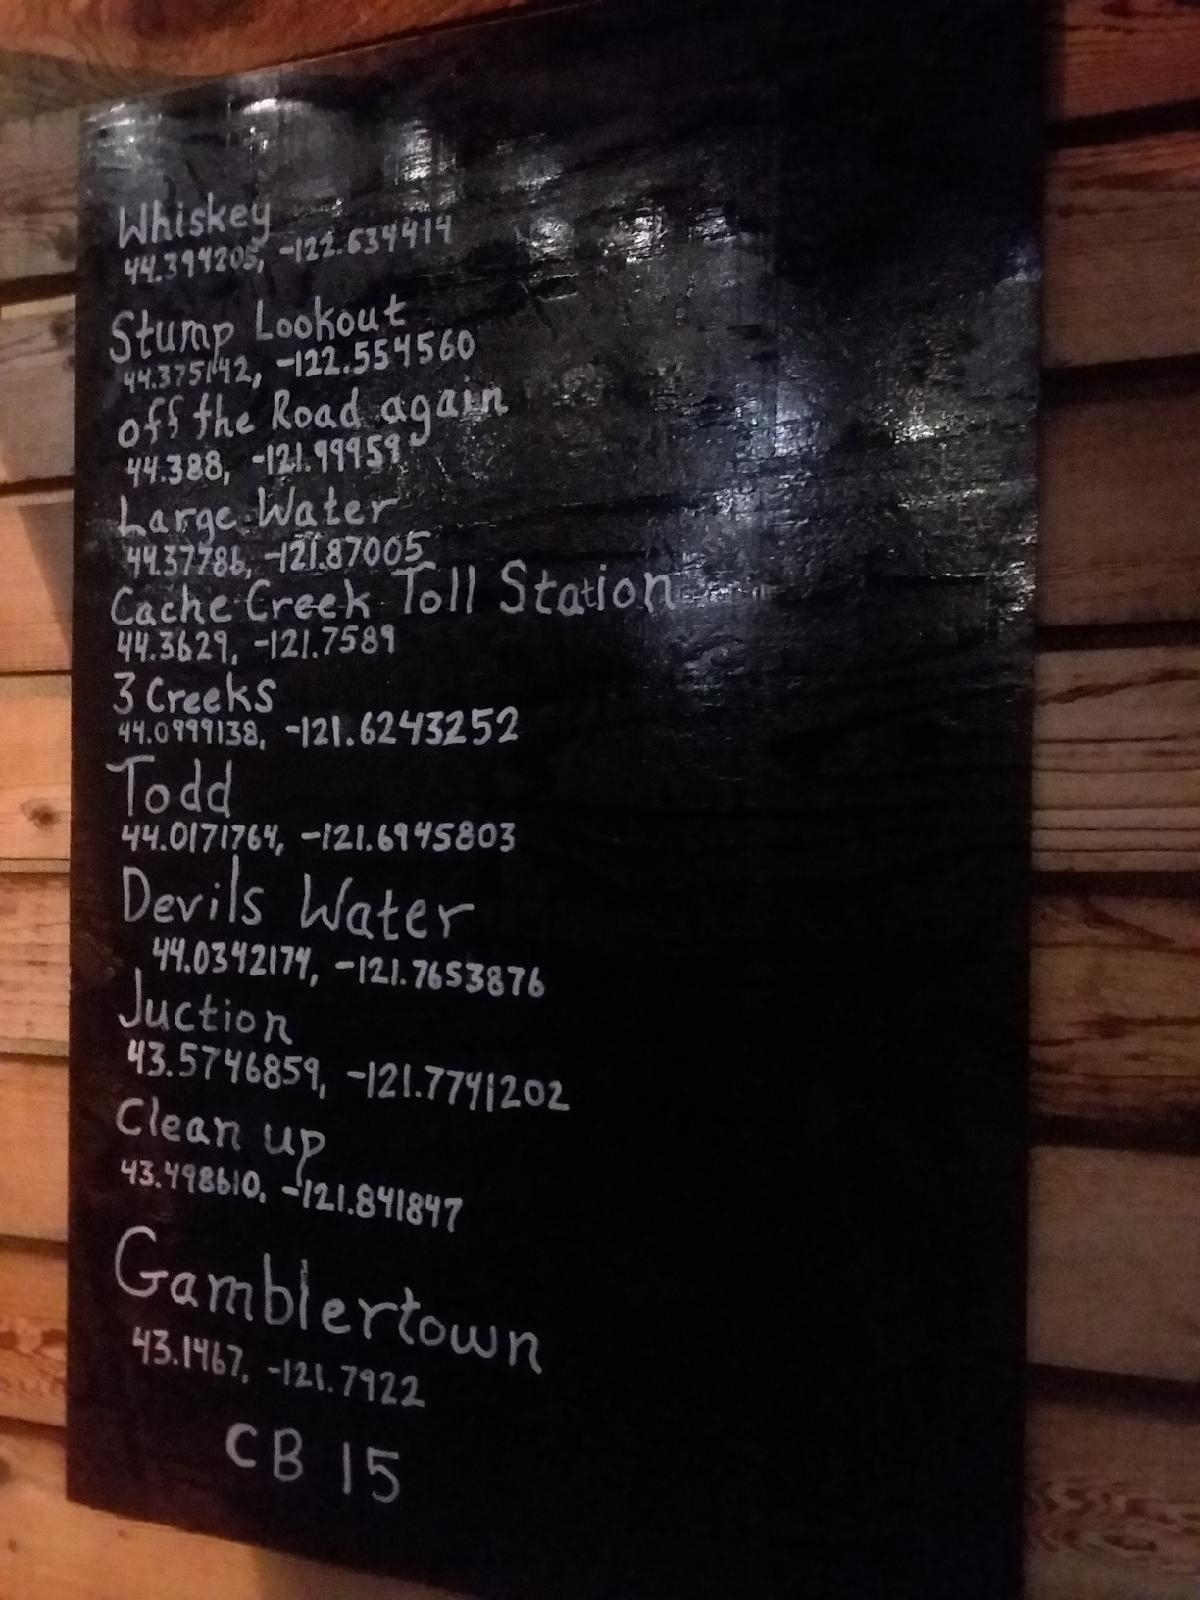 Whiskey
44.394205, -122.634414
Stump Lookout
44.375142, -122.554560
off the Road again
44.388, -121.99959
Large Water
44.37786, -121.87005
Cache Creek Toll Station
44.3629, -121.7589
3 Creeks
44.0999138, -121.6243252
Todd
44.0171764, -121.6945803
Devils Water
44.0342174, -121.7653876
Juction
43.5746859, -121.7741202
Clean up
43.498610, -121.841847
Gamblertown
43.1467, -121.7922
CB 15